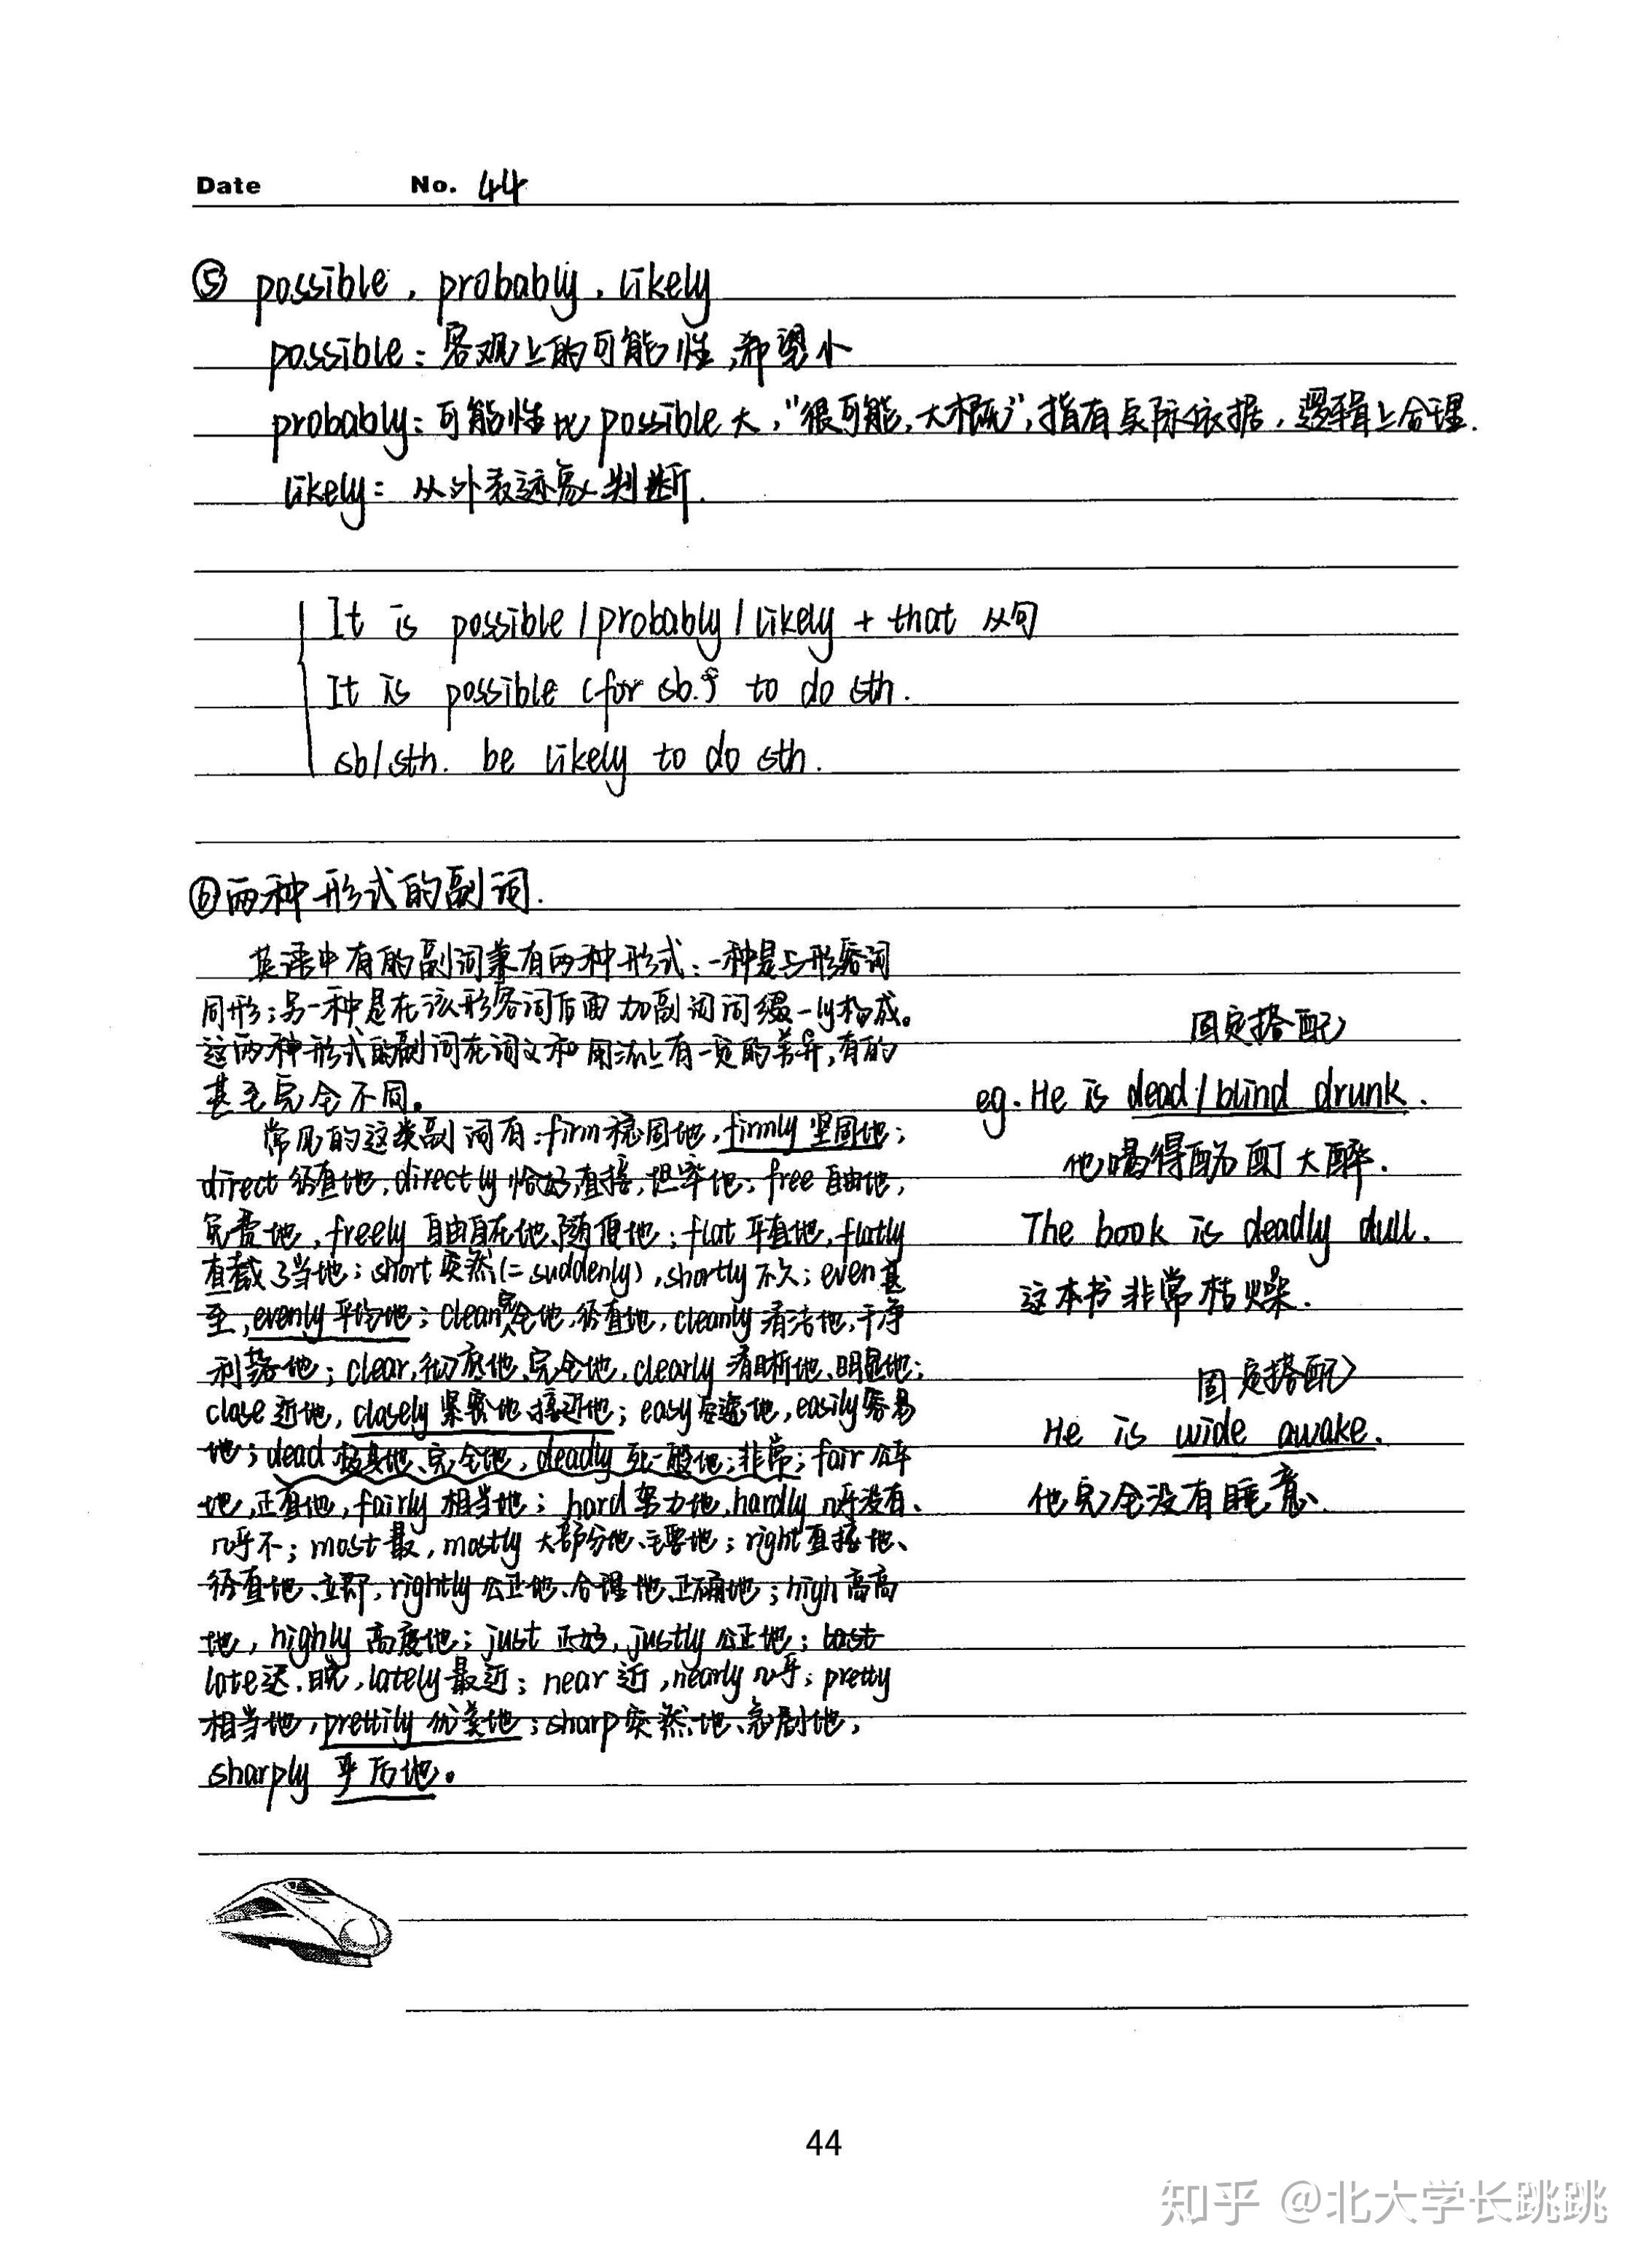 Date No. 44
⑤ possible, probably, likely
possible: 客观上的可能性,希望小
probably: 可能性比possible大,"很可能,大概",指有实际依据,逻辑上合理.
likely: 从外表迹象判断.
It is possible/probably/likely + that 从句
It is possible (for sb.) to do sth.
sb/sth. be likely to do sth.
⑥两种形式的副词.
英语中有的副词兼有两种形式:一种是与形容词
同形;另一种是在该形容词后面加副词词缀-ly构成。
这两种形式的副词在词义和用法上有一定的差异,有的
甚至完全不同。
常见的这类副词有:firm稳固地,firmly坚固地;
direct径直地,directly恰好,直接,坦率地;free自由地,
免费地,freely自由自在地、随便地;flat平直地,flatly
直截了当地;short突然(=suddenly),shortly不久;even甚
至,evenly平均地;clean完全地,径直地,cleanly清洁地,干净
利落地;clear,彻底地、完全地,clearly清晰地、明显地;
close近地,closely紧密地、接近地;easy安逸地,easily容易
地;dead极其地、完全地,deadly死一般地;非常;fair公平
地,正直地,fairly相当地;hard努力地,hardly几乎没有、
几乎不;most最,mostly大部分地、主要地;right直接地、
径直地、立即,rightly公正地、合理地、正确地;high高高
地,highly高度地;just正好,justly公正地;last
late迟、晚,lately最近;near近,nearly几乎;pretty
相当地,prettily优美地;sharp突然地、急剧地,
sharply 平后地。
固定搭配
eg. He is dead/blind drunk.
他喝得酩酊大醉.
The book is deadly dull.
这本书非常枯燥.
固定搭配
He is wide awake.
他完全没有睡意.
44
知乎 @北大学长跳跳